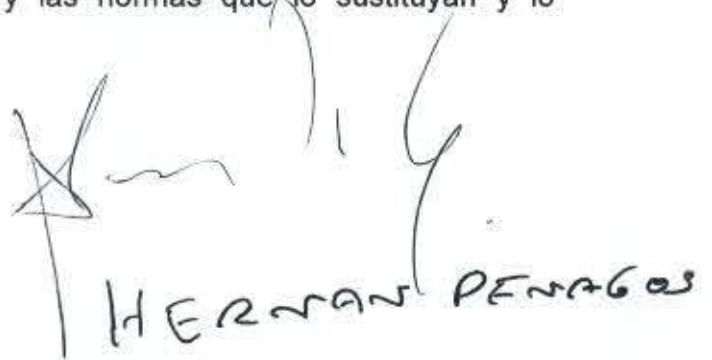 y las normas que lo sustituyan y lo
HERNAN PENAGOS